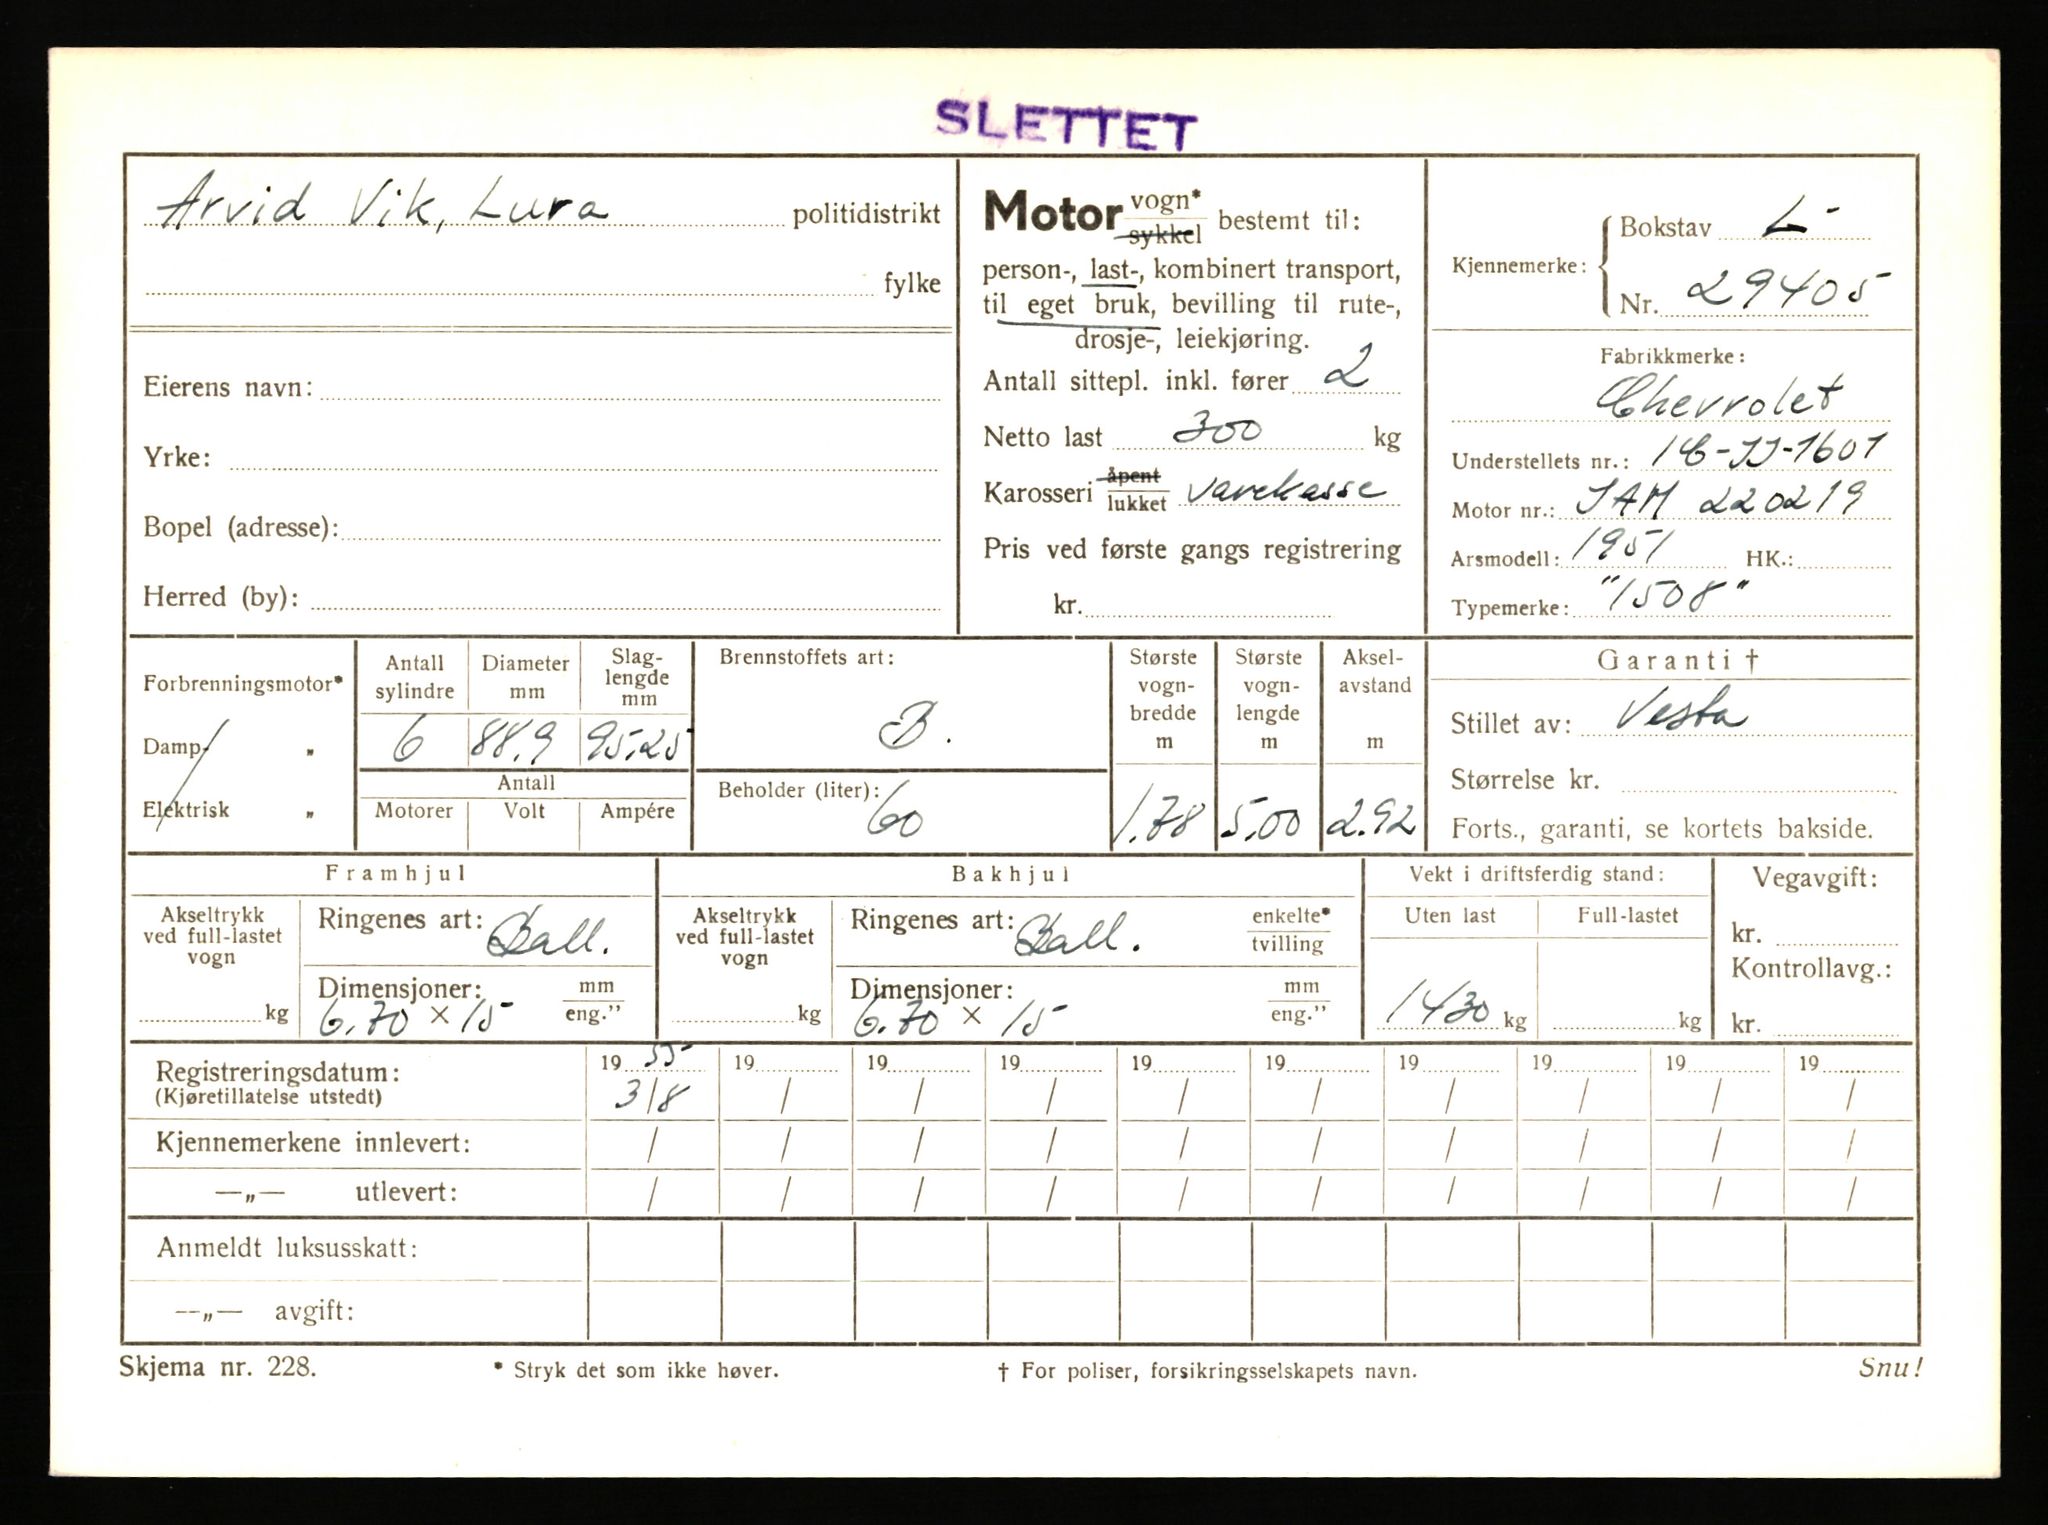 SLETTET
Arvid Vik, Lura politidistrikt
fylke
Eierens navn:
Yrke:
Bopel (adresse):
Herred (by):
Motor vogn* sykkel bestemt til:
person-, last-, kombinert transport,
til eget bruk, bevilling til rute-,
drosje-, leiekjøring.
Antall sittepl. inkl. fører 2
Netto last 300 kg
Karosseri åpent lukket varekasse
Pris ved første gangs registrering
kr.
Kjennemerke: Bokstav L-
Nr. 29405
Fabrikkmerke:
Chevrolet
Understellets nr.: 14-JJ-1601
Motor nr.: JAM 220219
Arsmodell: 1951 HK.:
Typemerke: "1508"
Forbrenningsmotor*
Damp- „
Elektrisk „
Antall sylindre Diameter mm Slag-lengde mm
6 88,9 95,25
Antall
Motorer Volt Ampére
Brennstoffets art:
B.
Beholder (liter): 60
Største vogn-bredde m
1.78
Største vogn-lengde m
5,00
Aksel-avstand m
2.92
Garanti †
Stillet av: Vesta
Størrelse kr.
Forts., garanti, se kortets bakside.
Framhjul
Akseltrykk ved full-lastet vogn
kg
Ringenes art: Ball.
Dimensjoner: mm eng."
6.70 × 15
Bakhjul
Akseltrykk ved full-lastet vogn
kg
Ringenes art: Ball. enkelte* tvilling
Dimensjoner: mm eng."
6.70 × 15
Vekt i driftsferdig stand:
Uten last Full-lastet
1430 kg kg
Vegavgift:
kr.
Kontrollavg.:
kr.
Registreringsdatum: 19 55 19 19 19 19 19 19 19 19 19
(Kjøretillatelse utstedt) 3/8 / / / / / / / / /
Kjennemerkene innlevert: / / / / / / / / / /
—„— utlevert: / / / / / / / / / /
Anmeldt luksusskatt:
—„— avgift:
Skjema nr. 228. * Stryk det som ikke høver. † For poliser, forsikringsselskapets navn. Snu!